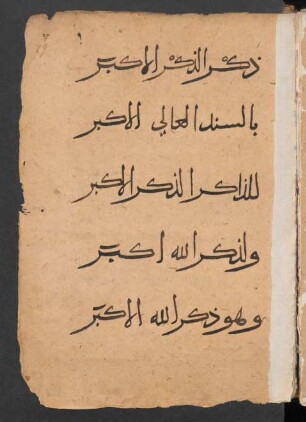 ذكر الذكر الاكبر
بالسند العالي الاكبر
للذاكر الذكر الاكبر
ولذكر الله اكبر
وهو ذكر الله الاكبر